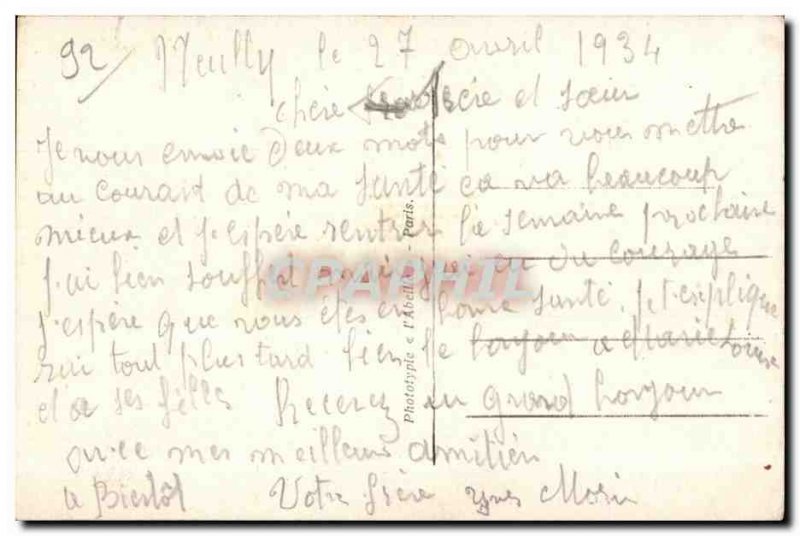 92 / Neuilly le 27 avril 1934
chère frère et sœur
Je vous envoie deux mots pour vous mettre
au courant de ma santé ça va beaucoup
mieux et j'espère rentrer la semaine prochaine
j'ai bien souffert mais j'ai eu du courage
j'espère que vous êtes en bonne santé. je t'explique
rai tout plus tard bien le bonjour a Marie Louise
et a ses filles Recevez un grand bonjour
avec mes meilleurs amitiés
a Bientôt Votre frère Yves Morin
Phototypie « l'Abeille » - Paris.
CPAPHIL